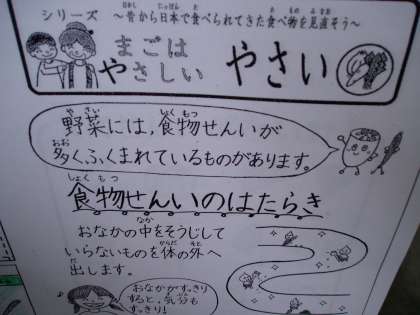 シリーズ ～昔から日本で食べられてきた食べ物を見直そう～
まごは
やさしい やさい
野菜には，食物せんいが
多くふくまれているものがあります。
食物せんいのはたらき
おなかの中をそうじして
いらないものを体の外へ
出します。
おなかがすっきり
すると、気分も
すっきり！